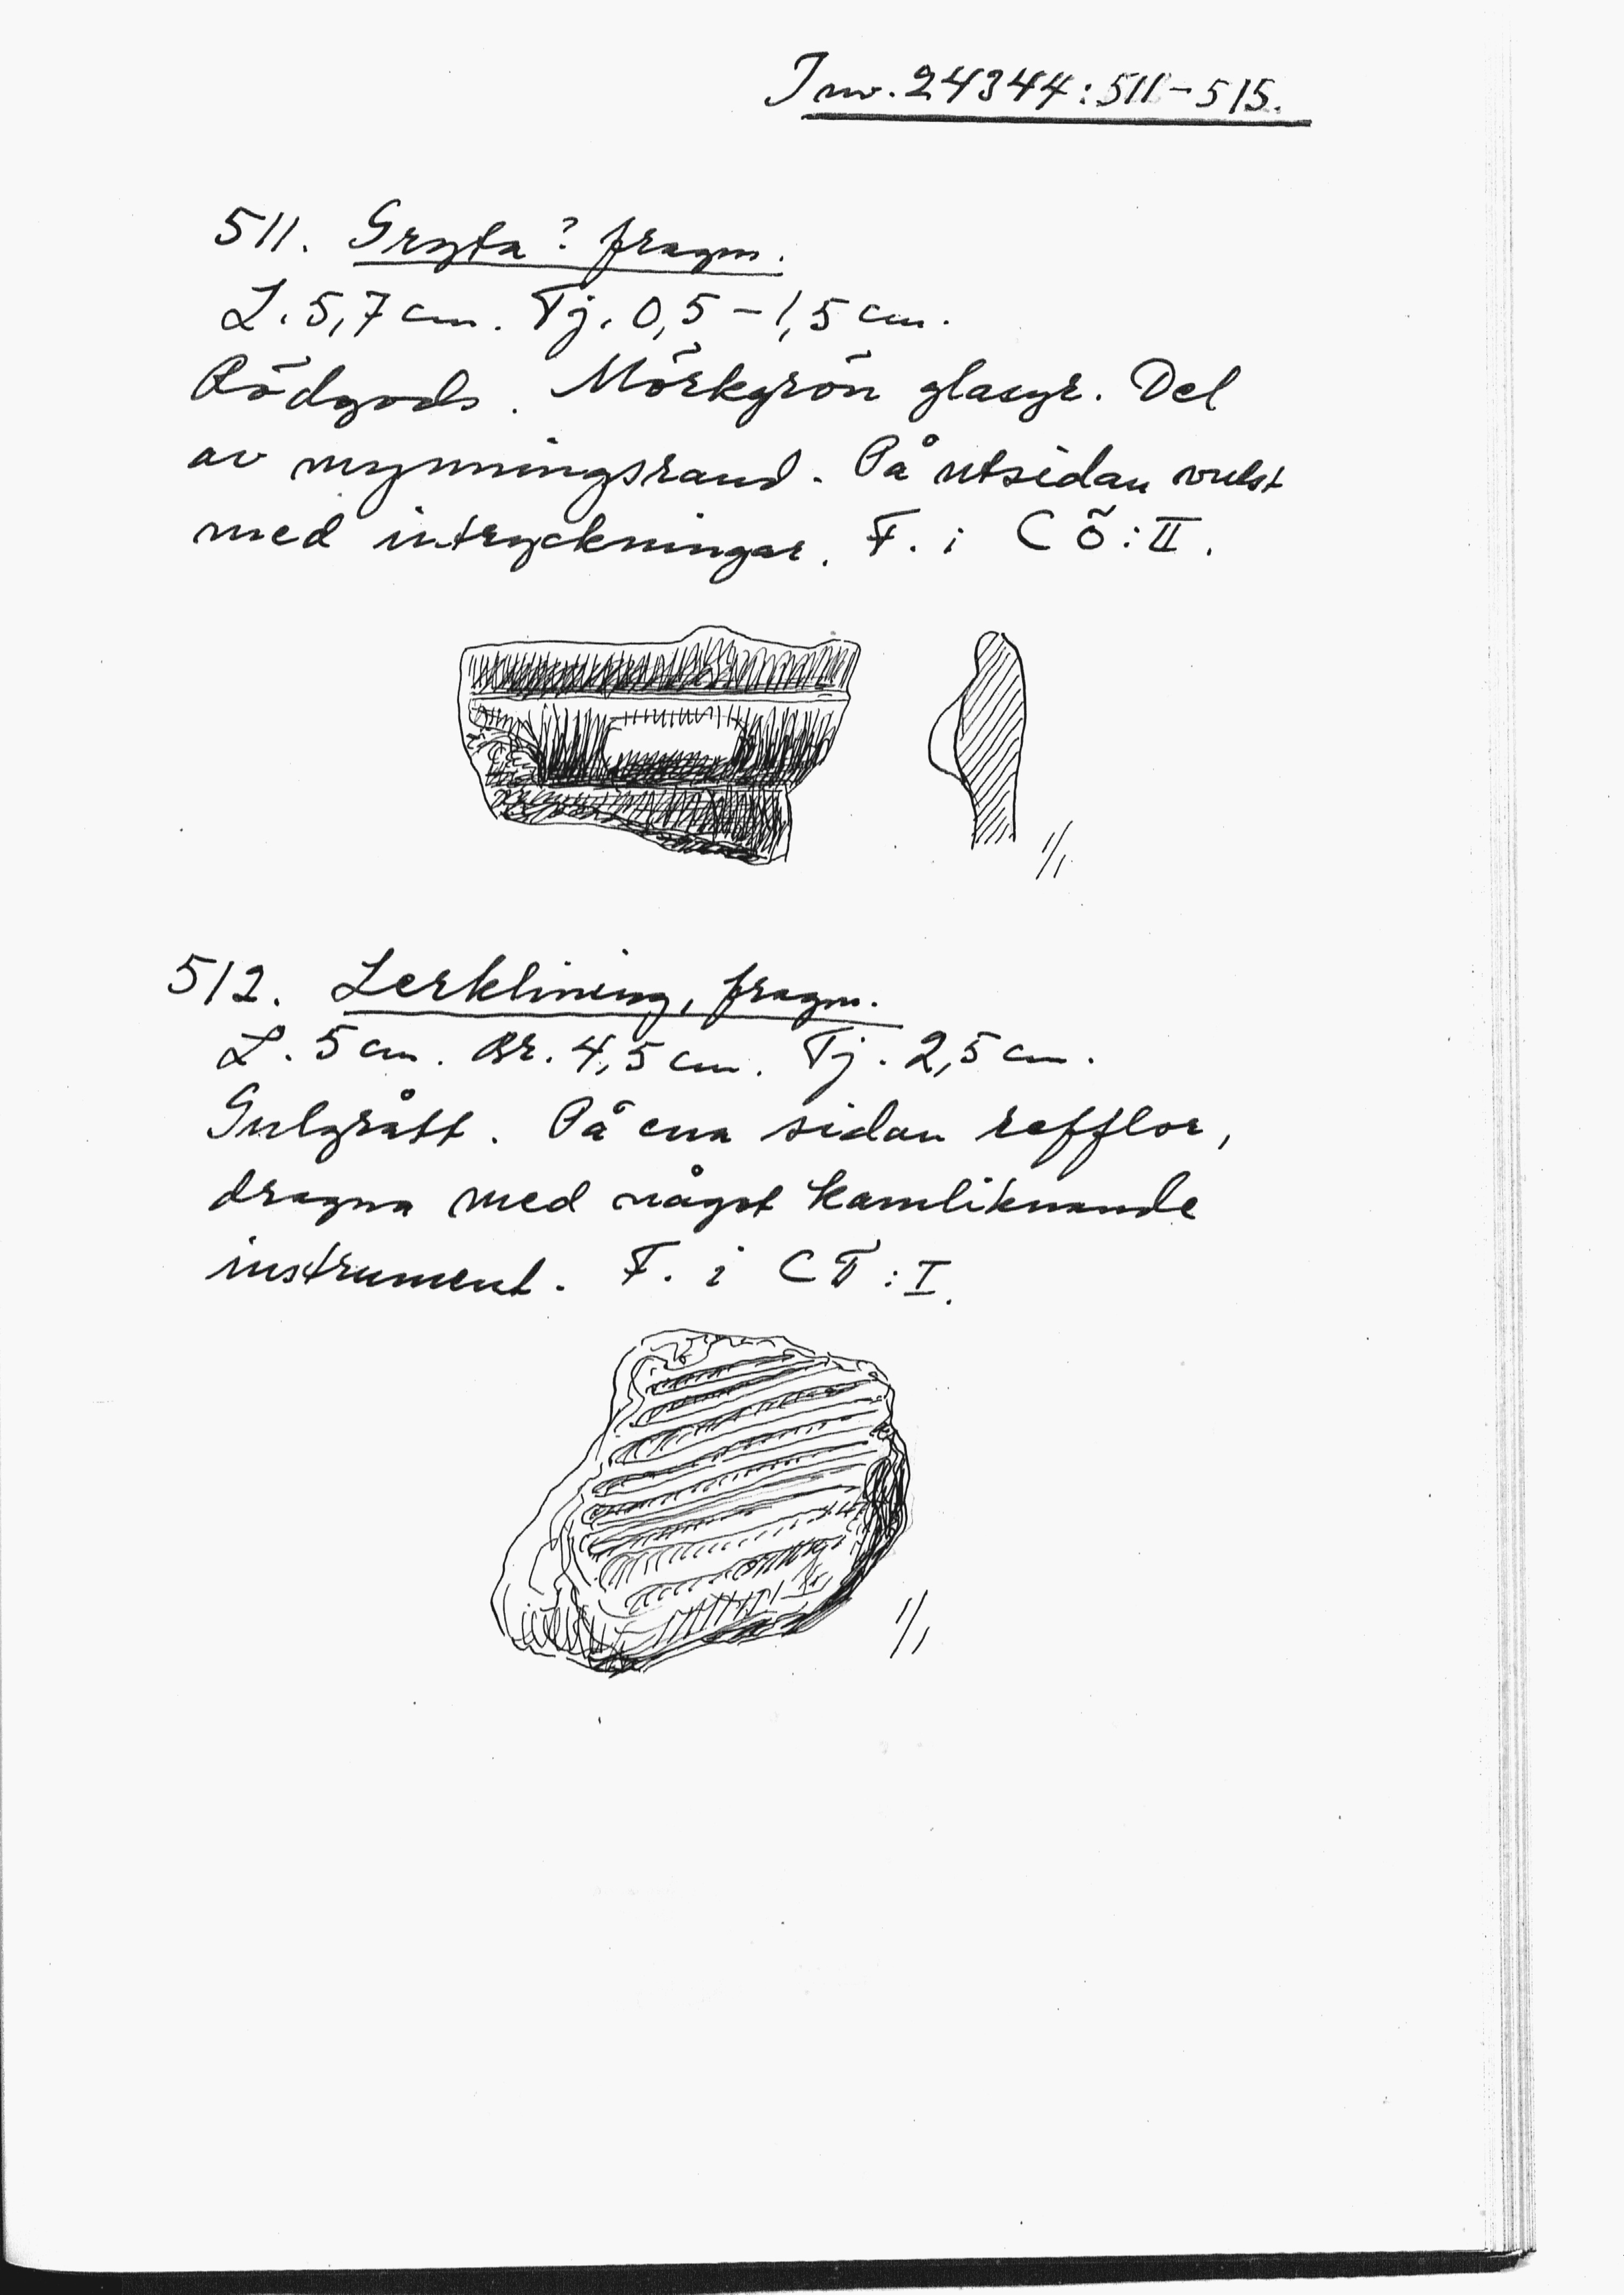 Inv. 24344:511-515.
511. Gryta? fragm.
L. 5,7 cm. Tj. 0,5-1,5 cm.
Rödgods. Mörkgrön glasyr. Del
av mynningsrand. På utsidan vulst
med intryckningar. F. i CÖ:II.
1/1
512. Lerklining, fragm.
L. 5 cm. Br. 4,5 cm. Tj. 2,5 cm.
Gulgrått. På ena sidan refflor,
dragna med något kamliknande
instrument. F. i CT:I.
1/1